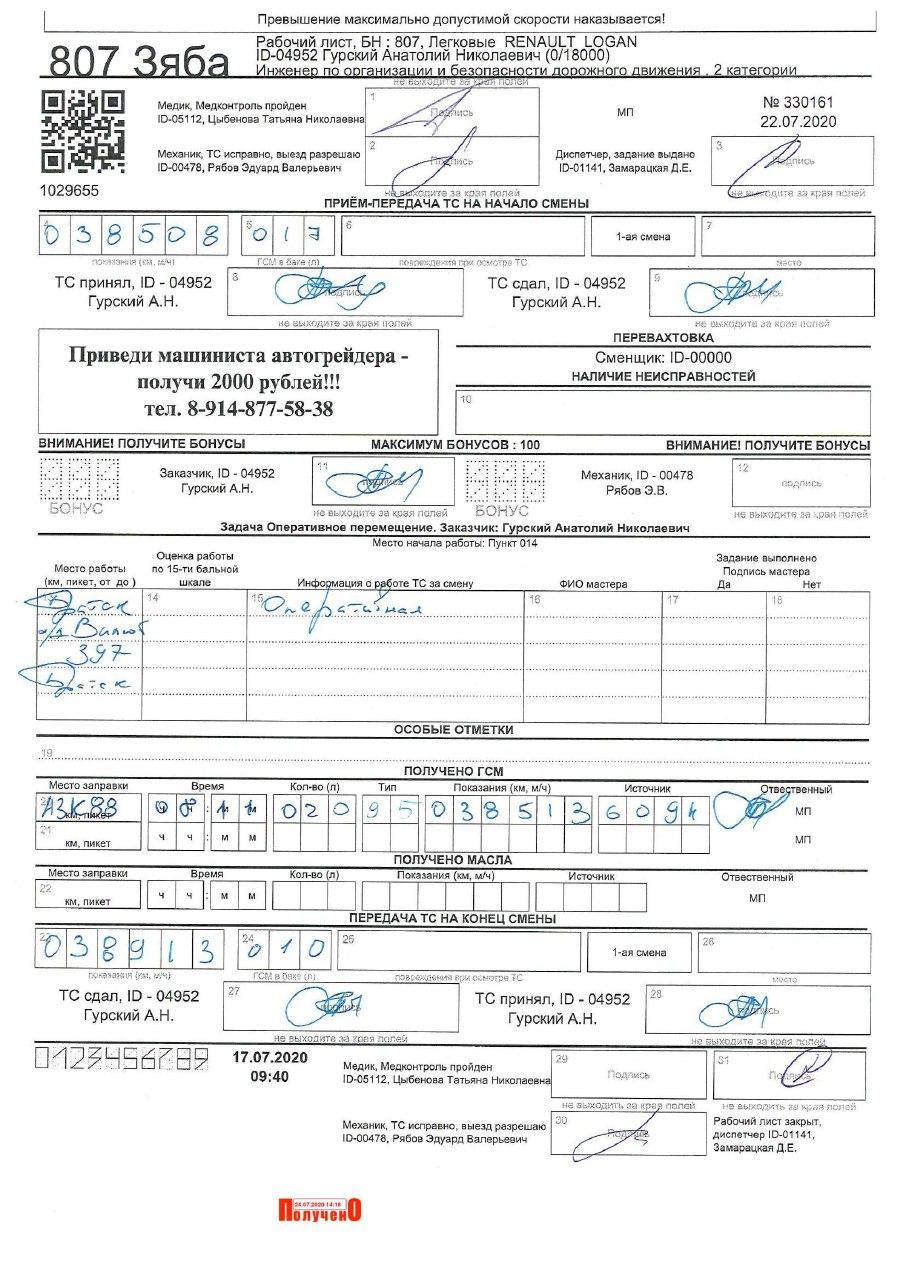 Превышение максимально допустимой скорости наказывается!
807 Зяба
Рабочий лист, БН : 807, Легковые RENAULT LOGAN
ID-04952 Гурский Анатолий Николаевич (0/18000)
Инженер по организации и безопасности дорожного движения . 2 категории
не выходите за края полей
Медик, Медконтроль пройден
ID-05112, Цыбенова Татьяна Николаевна
1
Подпись
МП
№ 330161
22.07.2020
Механик, ТС исправно, выезд разрешаю
ID-00478, Рябов Эдуард Валерьевич
2
Подпись
Диспетчер, задание выдано
ID-01141, Замарацкая Д.Е.
3
Подпись
1029655
не выходите за края полей
не выходите за края полей
ПРИЁМ-ПЕРЕДАЧА ТС НА НАЧАЛО СМЕНЫ
038508
5
017
6
1-ая смена
7
показания (км, м/ч)
ГСМ в баке (л)
повреждения при осмотре ТС
место
ТС принял, ID - 04952
Гурский А.Н.
8
подпись
ТС сдал, ID - 04952
Гурский А.Н.
9
подпись
не выходите за края полей
не выходите за края полей
Приведи машиниста автогрейдера -
получи 2000 рублей!!!
тел. 8-914-877-58-38
ПЕРЕВАХТОВКА
Сменщик: ID-00000
НАЛИЧИЕ НЕИСПРАВНОСТЕЙ
10
ВНИМАНИЕ! ПОЛУЧИТЕ БОНУСЫ
МАКСИМУМ БОНУСОВ : 100
ВНИМАНИЕ! ПОЛУЧИТЕ БОНУСЫ
БОНУС
Заказчик, ID - 04952
Гурский А.Н.
11
подпись
не выходите за края полей
БОНУС
Механик, ID - 00478
Рябов Э.В.
12
подпись
не выходите за края полей
Задача Оперативное перемещение. Заказчик: Гурский Анатолий Николаевич
Место начала работы: Пункт 014
Место работы
(км, пикет, от до )
Оценка работы
по 15-ти бальной
шкале
Информация о работе ТС за смену
ФИО мастера
Задание выполнено
Подпись мастера
Да Нет
13 14 15 16 17 18
Братск
Оперативная
а/д Вилюй
397
Братск
ОСОБЫЕ ОТМЕТКИ
19
ПОЛУЧЕНО ГСМ
Место заправки
Время
Кол-во (л)
Тип
Показания (км, м/ч)
Источник
Отвественный
АЗК 88
км, пикет
020
95
038513
МП
21
км, пикет
ч ч : м м
МП
ПОЛУЧЕНО МАСЛА
Место заправки
Время
Кол-во (л)
Показания (км, м/ч)
Источник
Отвественный
22
км, пикет
ч ч : м м
МП
ПЕРЕДАЧА ТС НА КОНЕЦ СМЕНЫ
23
038913
24
010
25
1-ая смена
26
показания (км, м/ч)
ГСМ в баке (л)
повреждения при осмотре ТС
место
ТС сдал, ID - 04952
Гурский А.Н.
27
подпись
ТС принял, ID - 04952
Гурский А.Н.
28
подпись
не выходите за края полей
не выходите за края полей
0123456789
17.07.2020
09:40
Медик, Медконтроль пройден
ID-05112, Цыбенова Татьяна Николаевна
29
Подпись
31
Подпись
не выходить за края полей
не выходите за края полей
Механик, ТС исправно, выезд разрешаю
ID-00478, Рябов Эдуард Валерьевич
30
Подпись
Рабочий лист закрыт,
диспетчер ID-01141,
Замарацкая Д.Е.
24.07.2020 14:18
ПолученО